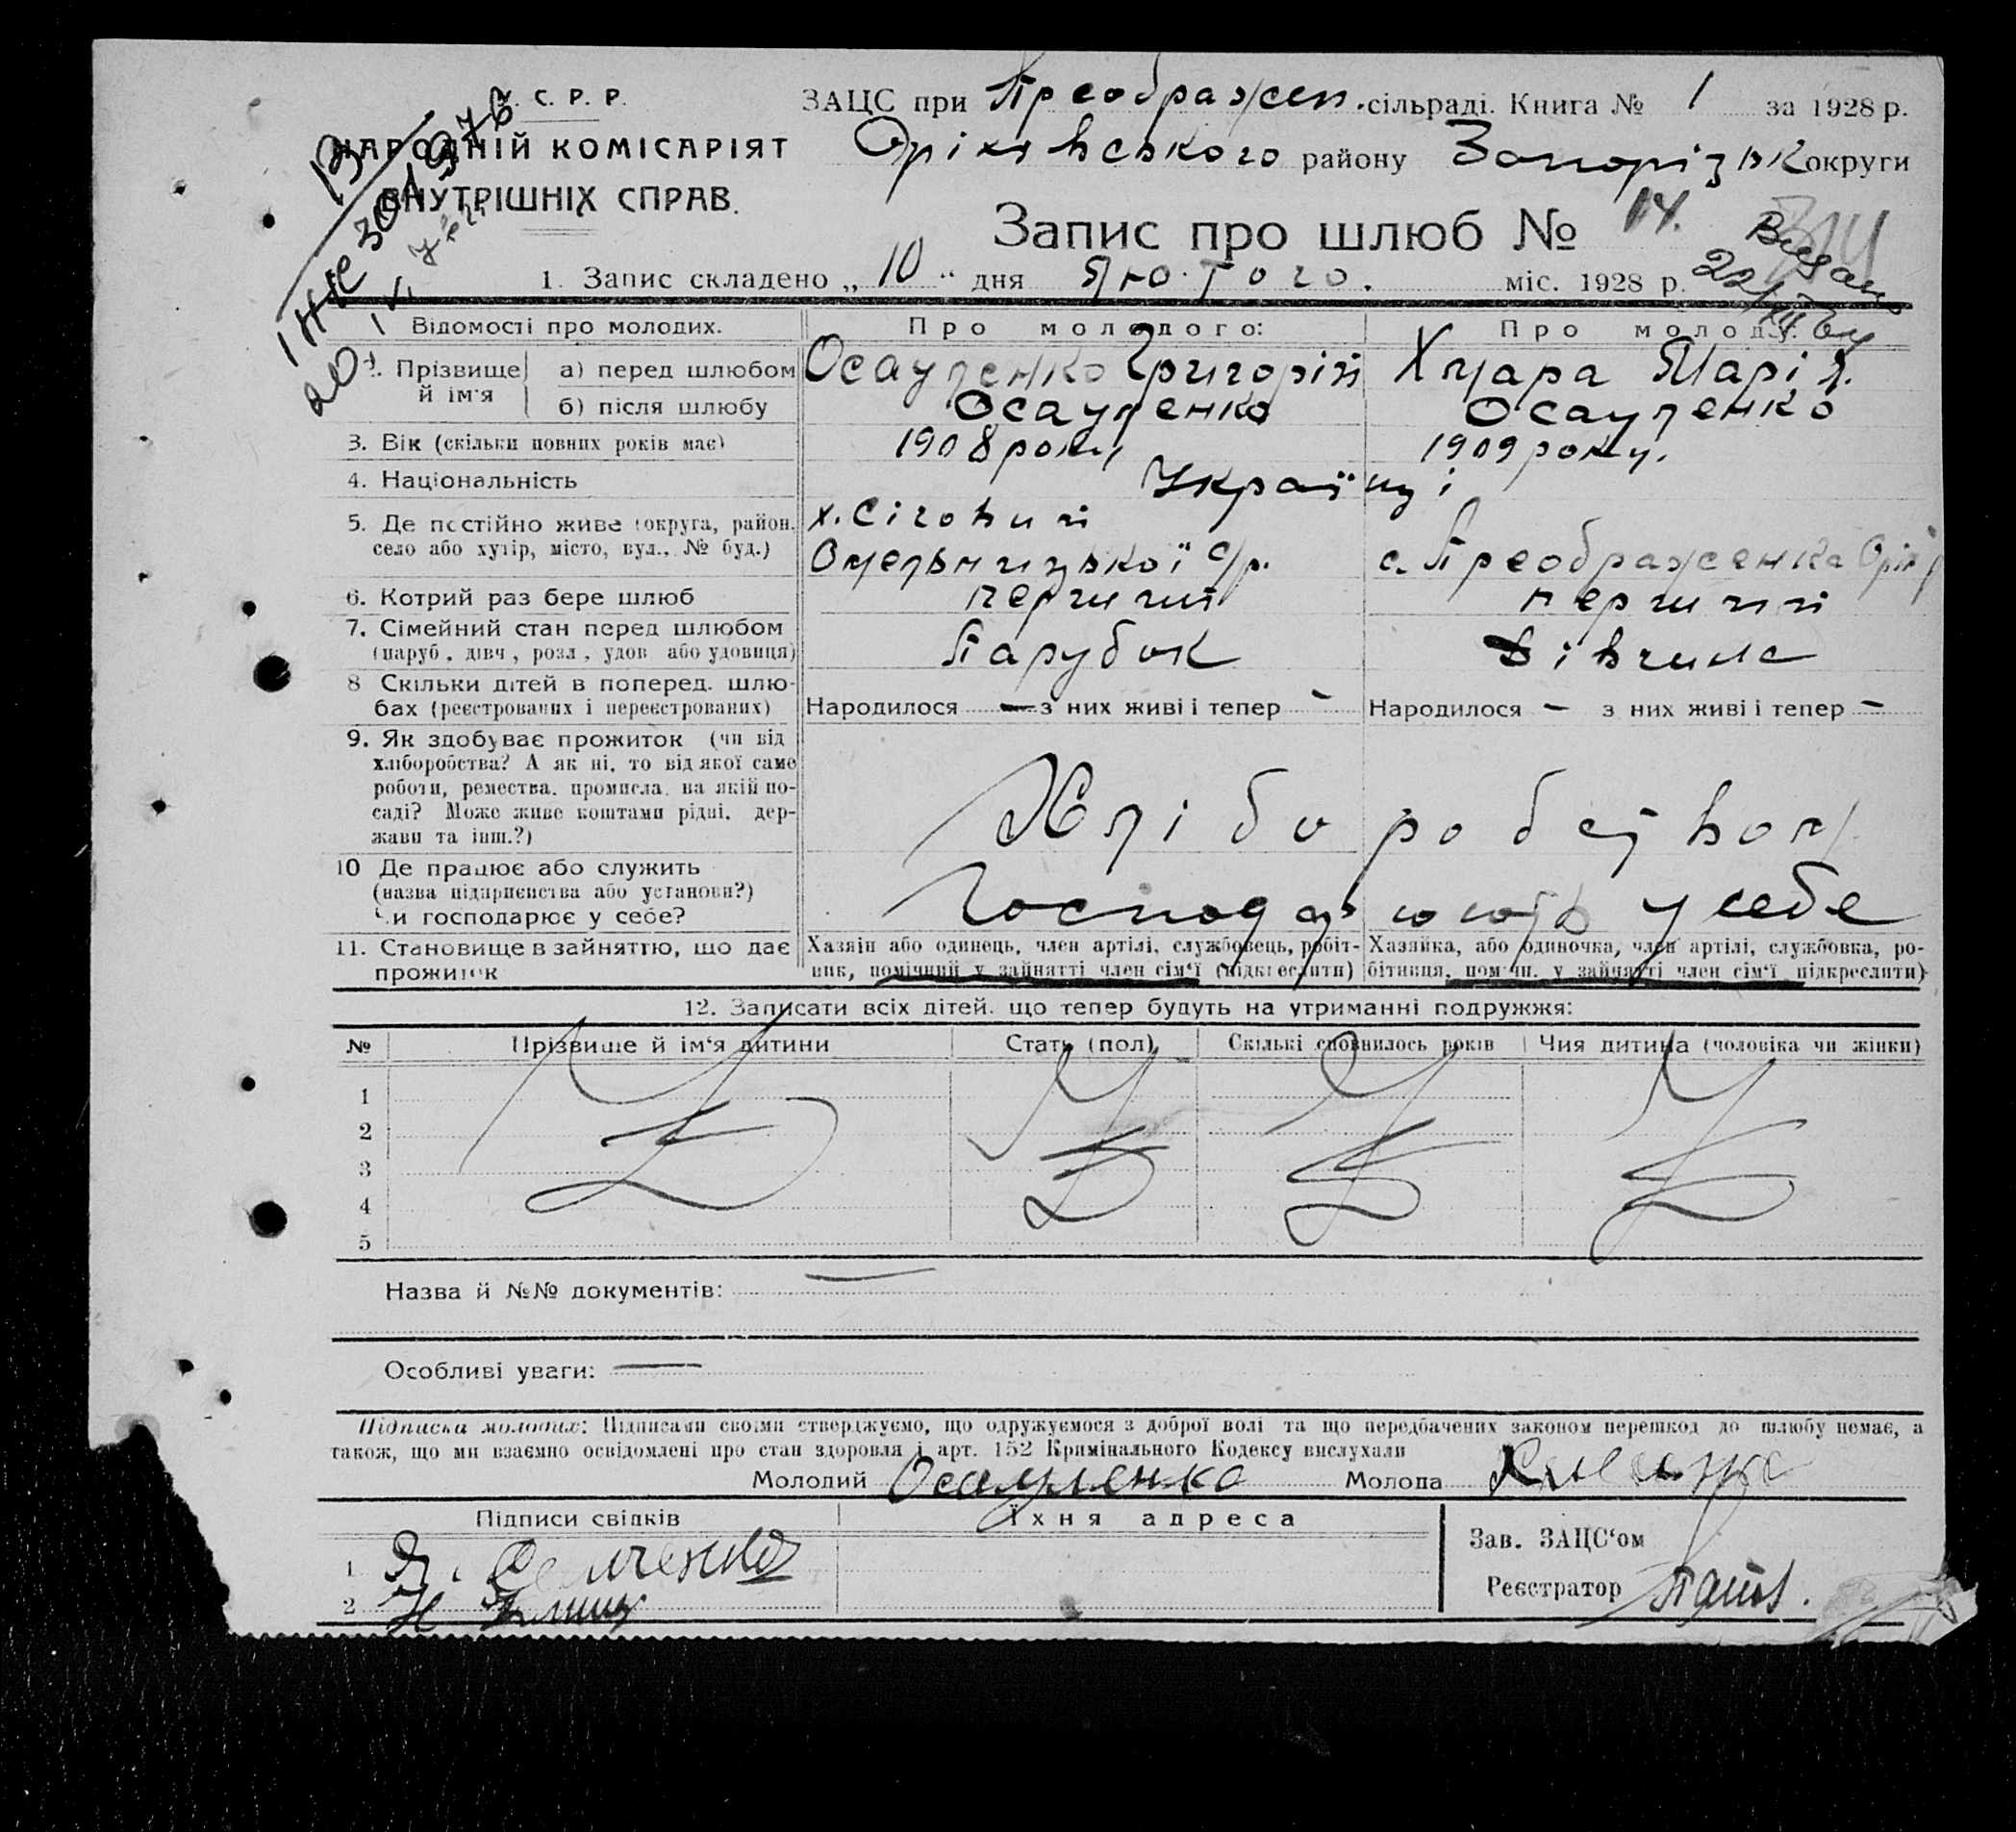 У. С. Р. Р.
НАРОДНІЙ КОМІСАРІЯТ
ВНУТРІШНІХ СПРАВ.
ЗАЦС при Преображен. сільраді. Книга № 1 за 1928 р.
Оріхівського району Запорізьк округи
Запис про шлюб № 14.
1. Запис складено „10“ дня Лютого. міс. 1928 р.
Відомості про молодих. Про молодого: Про молоду:
2. Прізвище й ім'я а) перед шлюбом Осауленко Григорій Хмара Марія.
б) після шлюбу Осауленко Осауленко
3. Вік (скільки повних років має) 1908 року 1909 року.
4. Національність Українці
5. Де постійно живе (округа, район, х.
село або хутір, місто, вул., № буд.) Омельницької с/р. с. Преображенка Оріх р
6. Котрий раз бере шлюб перший перший
7. Сімейний стан перед шлюбом Парубок Дівчина
(паруб., дівч., розл., удов. або удовиця)
8 Скільки дітей в поперед. шлю-
бах (реєстрованих і нереєстрованих) Народилося — з них живі і тепер - Народилося - з них живі і тепер -
9. Як здобуває прожиток (чи від
хліборобства? А як ні, то від якої саме
роботи, ремества, промисла, на якій по-
саді? Може живе коштами рідні, дер-
жави та інш.?) Хлібороб
10 Де працює або служить
(назва підприємства або установи?)
Чи господарює у себе? Господарюють у себе
11. Становище в зайняттю, що дає Хазяїн або одинець, член артілі, службовець, робіт- Хазяйка, або одиночка, член артілі, службовка, ро-
прожиток ник, помічний у зайнятті член сім'ї (підкреслити) бітниця, помічн. у зайнятті член сім'ї підкреслити)
12. Записати всіх дітей, що тепер будуть на утриманні подружжя:
№ Прізвище й ім'я дитини Стать (пол) Скількі сповнилось років Чия дитина (чоловіка чи жінки)
1
2
3
4
5
Назва й №№ документів: —
Особливі уваги: —
Підписка молодих: Підписами своїми стверджуємо, що одружуємося з доброї волі та що передбачених законом перешкод до шлюбу немає, а
також, що ми взаємно освідомлені про стан здоровля і арт. 152 Кримінального Кодексу вислухали
Молодий Осауленко Молода
Підписи свідків Їхня адреса Зав. ЗАЦС'ом
1
2
Реєстратор